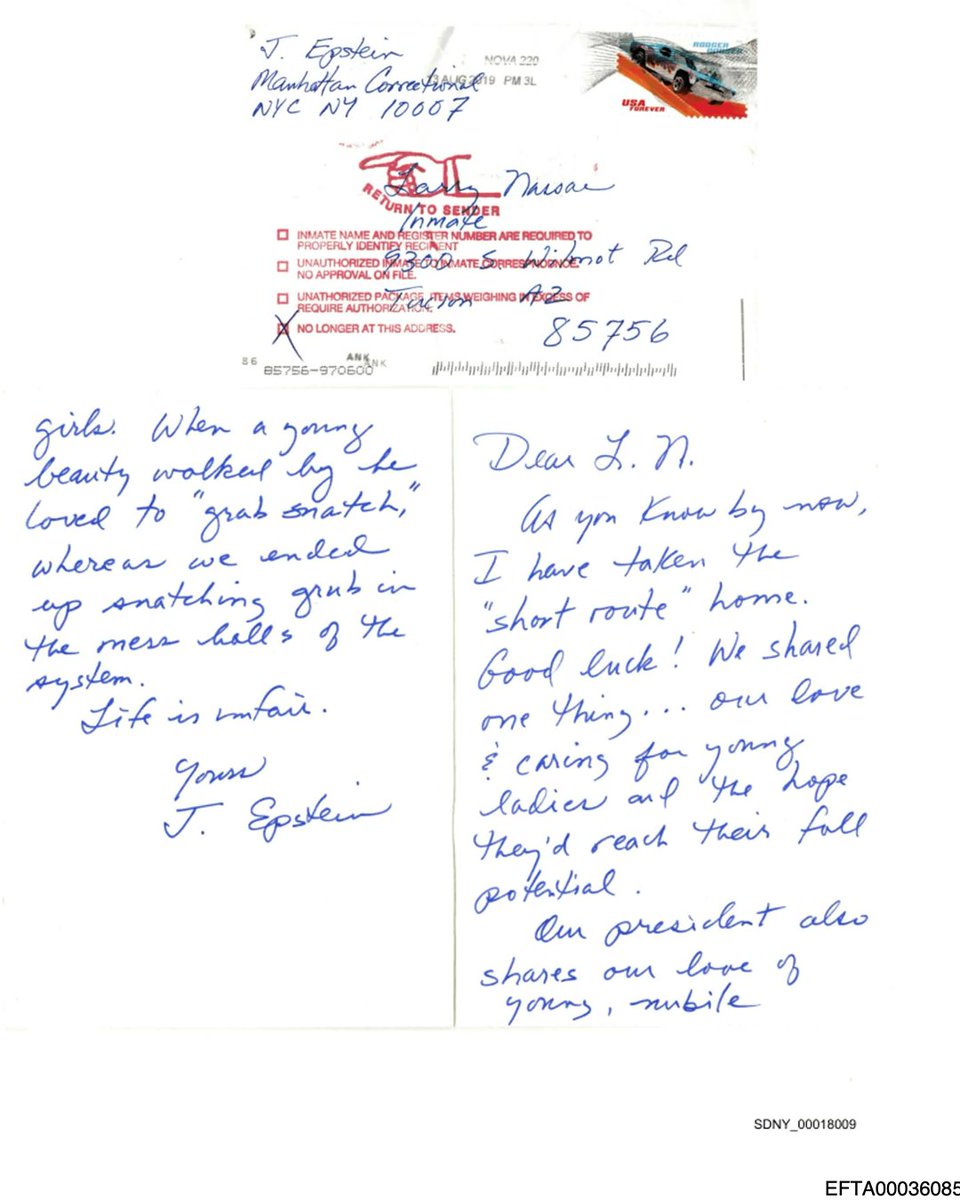 J. Epstein
Manhattan Correctional
NYC NY 10007
NOVA 220
13 AUG 2019 PM 3L
USA
FOREVER
RETURN TO SENDER
Larry Nassar
Inmate
9300 S. Wilmot Rd
Tucson AZ
85756
INMATE NAME AND REGISTER NUMBER ARE REQUIRED TO
PROPERLY IDENTIFY RECIPIENT
UNAUTHORIZED INMATE TO INMATE CORRESPONDENCE.
NO APPROVAL ON FILE.
UNAUTHORIZED PACKAGE, ITEMS WEIGHING IN EXCESS OF
REQUIRE AUTHORIZATION.
NO LONGER AT THIS ADDRESS.
86
ANK
ANK
85756-970600
Dear L. N.
As you know by now,
I have taken the
"short route" home.
Good luck! We shared
one thing... our love
& caring for young
ladies and the hope
they'd reach their full
potential.
Our president also
shares our love of
young, nubile
girls. When a young
beauty walked by he
loved to "grab snatch,"
whereas we ended
up snatching grub in
the mess halls of the
system.
Life is unfair.
Yours
J. Epstein
SDNY_00018009
EFTA00036085